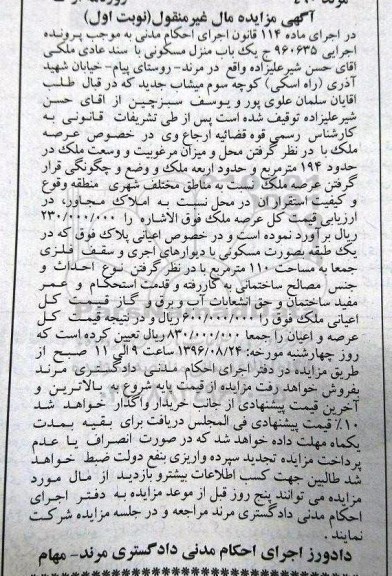 آگهی مزایده مال غیرمنقول(نوبت اول)
در اجرای ماده ۱۱۴ قانون اجرای احکام مدنی به موجب پرونده
اجرایی ۹۶۰۶۳۵ ج یک باب منزل مسکونی با سند عادی ملکی
آقای حسن شیرعلیزاده واقع در مرند- روستای پیام- خیابان شهید
آذری (راه اسکی) کوچه سوم میشاب جدید که در قبال طلب
آقایان سلمان علوی پور و یوسف سبزچین از آقای حسن
شیرعلیزاده توقیف شده است پس از طی تشریفات قانونی به
کارشناس رسمی قوه قضائیه ارجاع وی در خصوص عرصه
ملک با در نظر گرفتن محل و میزان مرغوبیت و وسعت ملک در
حدود ۱۹۴ مترمربع و حدود اربعه ملک و وضع و چگونگی قرار
گرفتن عرصه ملک نسبت به مناطق مختلف شهری منطقه وقوع
و کیفیت استقرار آن در محل نسبت به املاک مجاور، در
ارزیابی قیمت کل عرصه ملک فوق الاشاره را ۲۳۰/۰۰۰/۰۰۰
ریال برآورد نموده است و در خصوص اعیانی پلاک فوق که در
یک طبقه بصورت مسکونی با دیوارهای آجری و سقف فلزی
جمعا به مساحت ۱۱۰ مترمربع با در نظر گرفتن نوع احداث و
جنس مصالح ساختمانی به کار رفته و قدمت استحکام و عمر
مفید ساختمان و حق انشعابات آب و برق و گاز قیمت کل
اعیانی ملک فوق را ۶۰۰/۰۰۰/۰۰۰ ریال و در نتیجه قیمت کل
عرصه و اعیان را جمعا ۸۳۰/۰۰۰/۰۰۰ ریال تعیین کرده است که
روز چهارشنبه مورخه: ۱۳۹۶/۰۸/۲۴ ساعت ۹ الی ۱۱ صبح از
طریق مزایده در دفتر اجرای احکام مدنی دادگستری مرند
بفروش خواهد رفت مزایده از قیمت پایه شروع به بالاترین و
آخرین قیمت پیشنهادی از جانب خریدار واگذار خواهد شد
۱۰٪ قیمت پیشنهادی فی المجلس دریافت برای بقیه بمدت
یکماه مهلت داده خواهد شد که در صورت انصراف یا عدم
پرداخت مزایده تجدید سپرده واریزی بنفع دولت ضبط خواهد
شد طالبین جهت کسب اطلاعات بیشتر و بازدید از مال مورد
مزایده می توانند پنج روز قبل از موعد مزایده به دفتر اجرای
احکام مدنی دادگستری مرند مراجعه و در جلسه مزایده شرکت
نمایند.
دادورز اجرای احکام مدنی دادگستری مرند- مهام